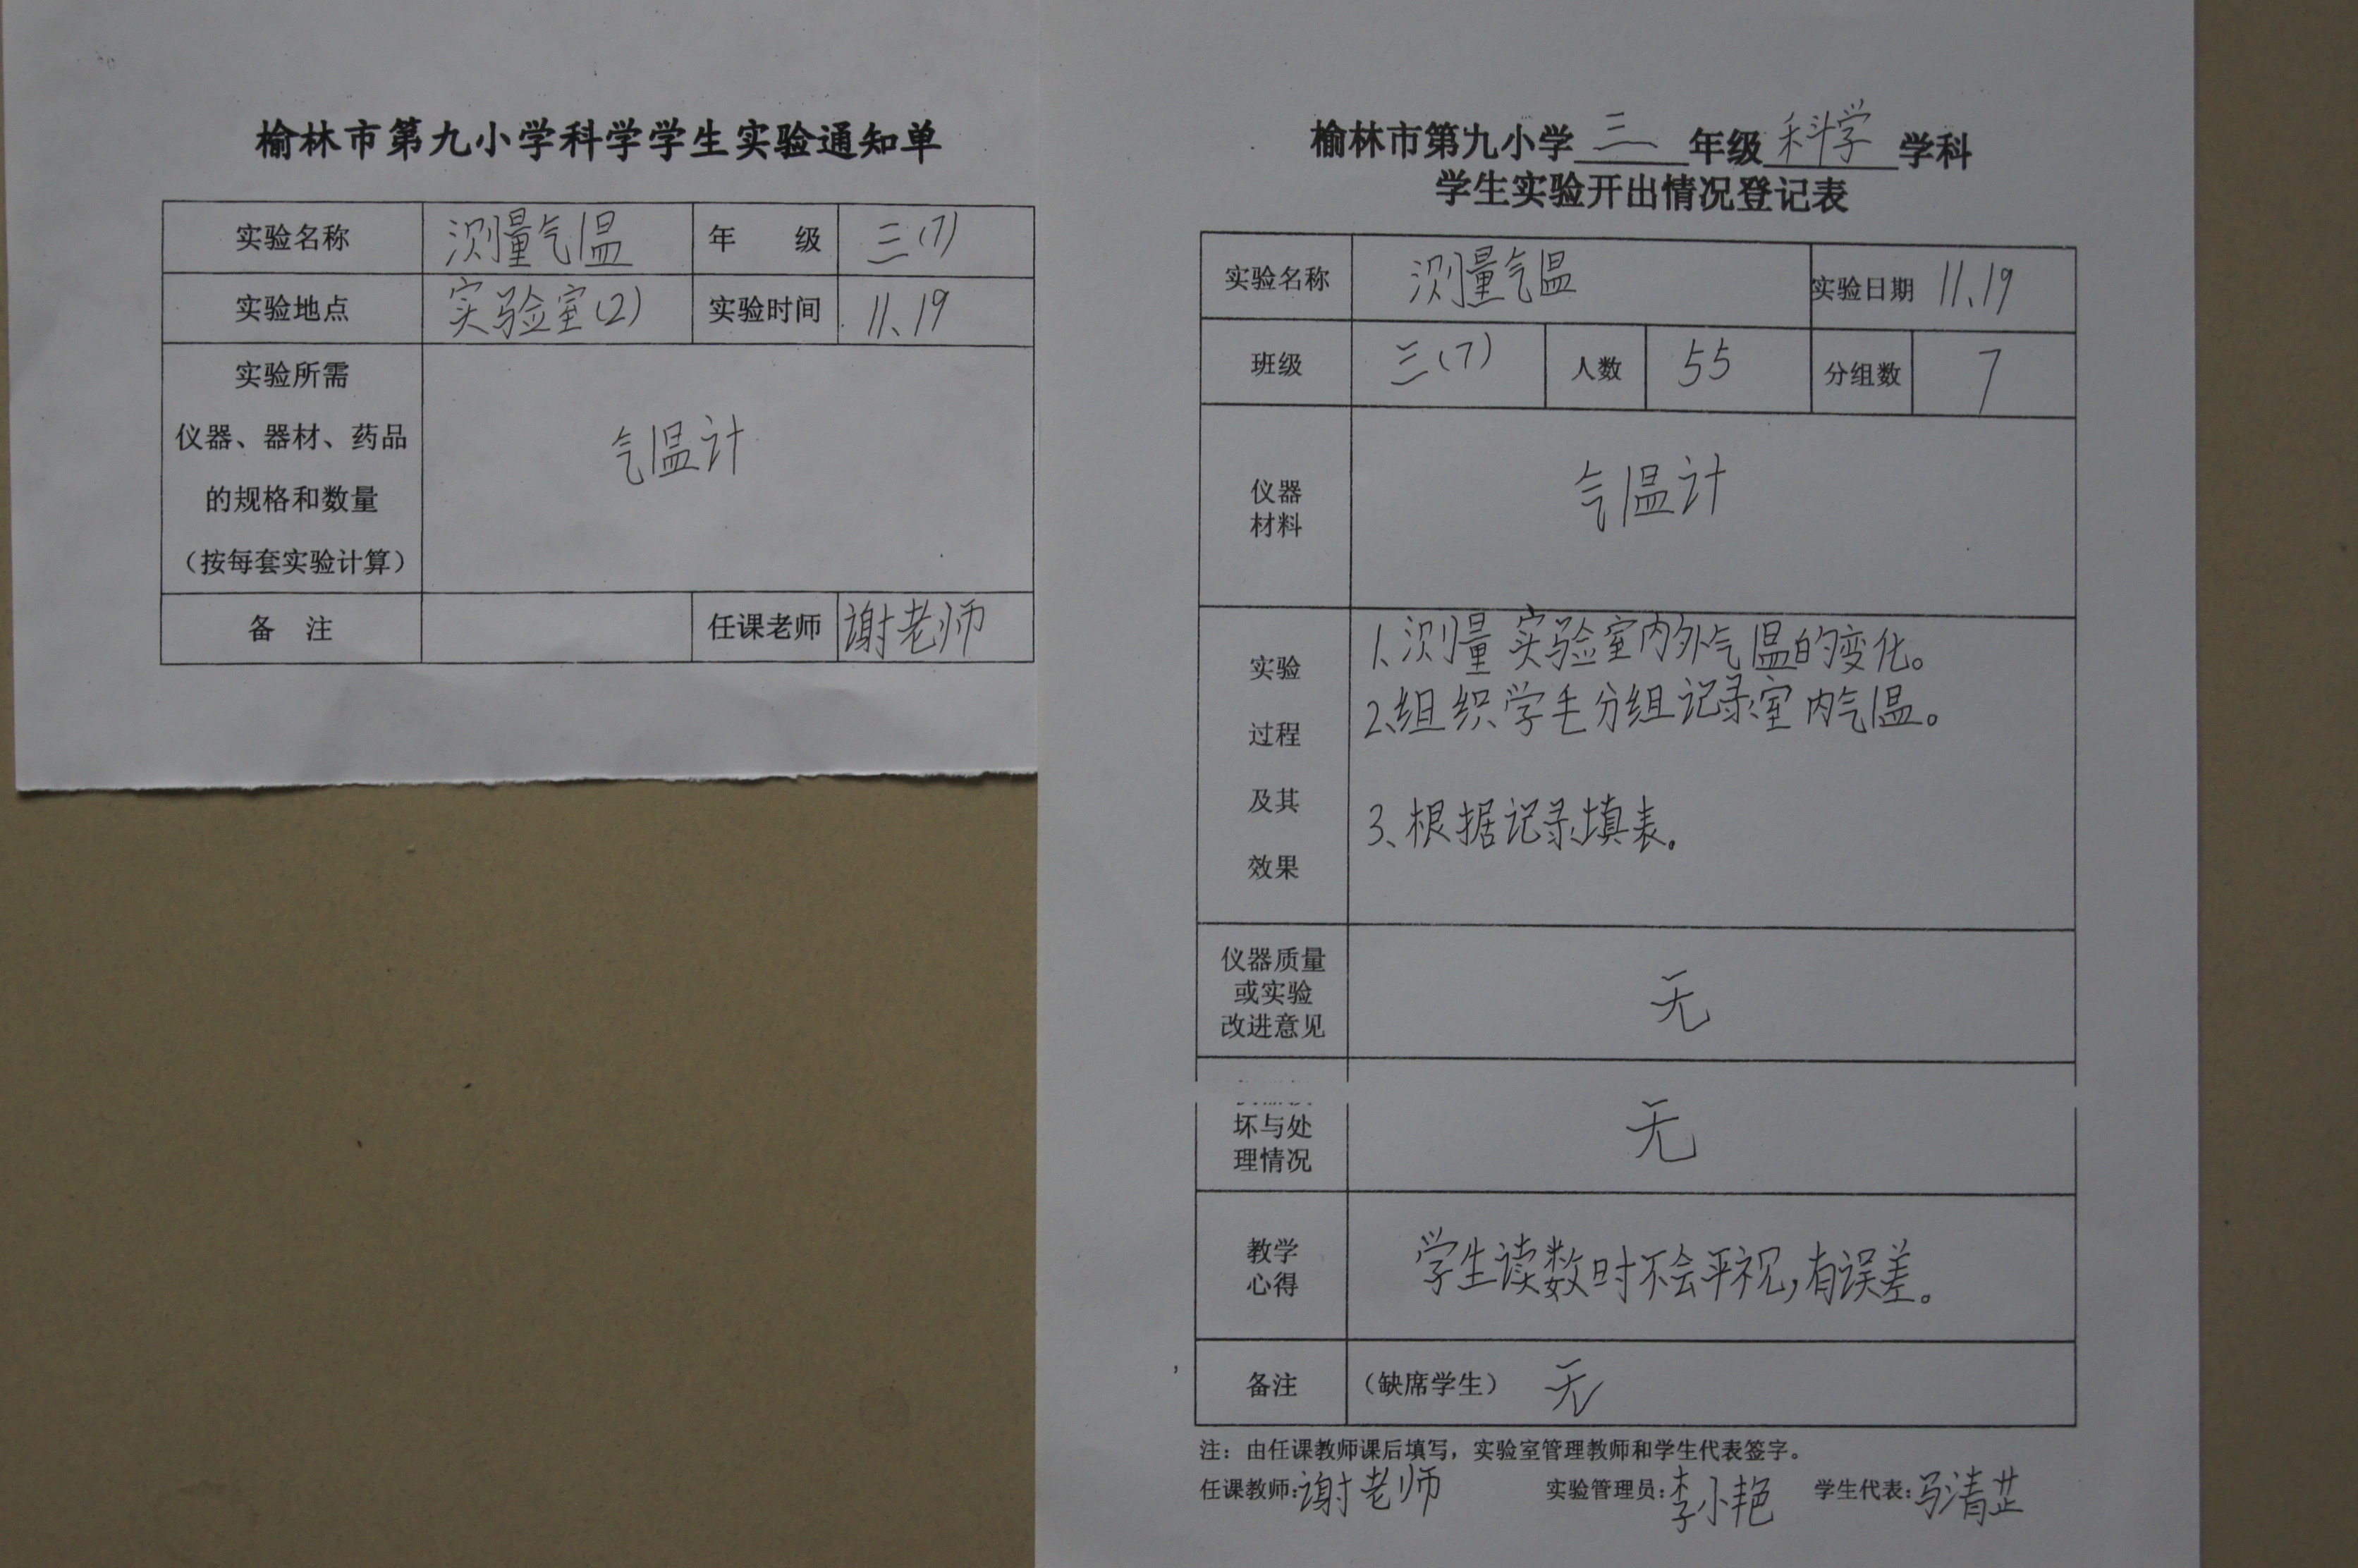 榆林市第九小学科学学生实验通知单
实验名称 测量气温 年 级 三(7)
实验地点 实验室(2) 实验时间 11、19
实验所需
仪器、器材、药品
的规格和数量
（按每套实验计算）
气温计
备 注 任课老师 谢老师
榆林市第九小学 三 年级 科学 学科
学生实验开出情况登记表
实验名称 测量气温 实验日期 11、19
班级 三(7) 人数 55 分组数 7
仪器
材料
气温计
实验
过程
及其
效果
1、测量实验室内外气温的变化。
2、组织学生分组记录室内气温。
3、根据记录填表。
仪器质量
或实验
改进意见
无
坏与处
理情况
无
教学
心得
学生读数时不会平视,有误差。
备注 （缺席学生） 无
注：由任课教师课后填写，实验室管理教师和学生代表签字。
任课教师:谢老师 实验管理员:李小艳 学生代表:马清芷